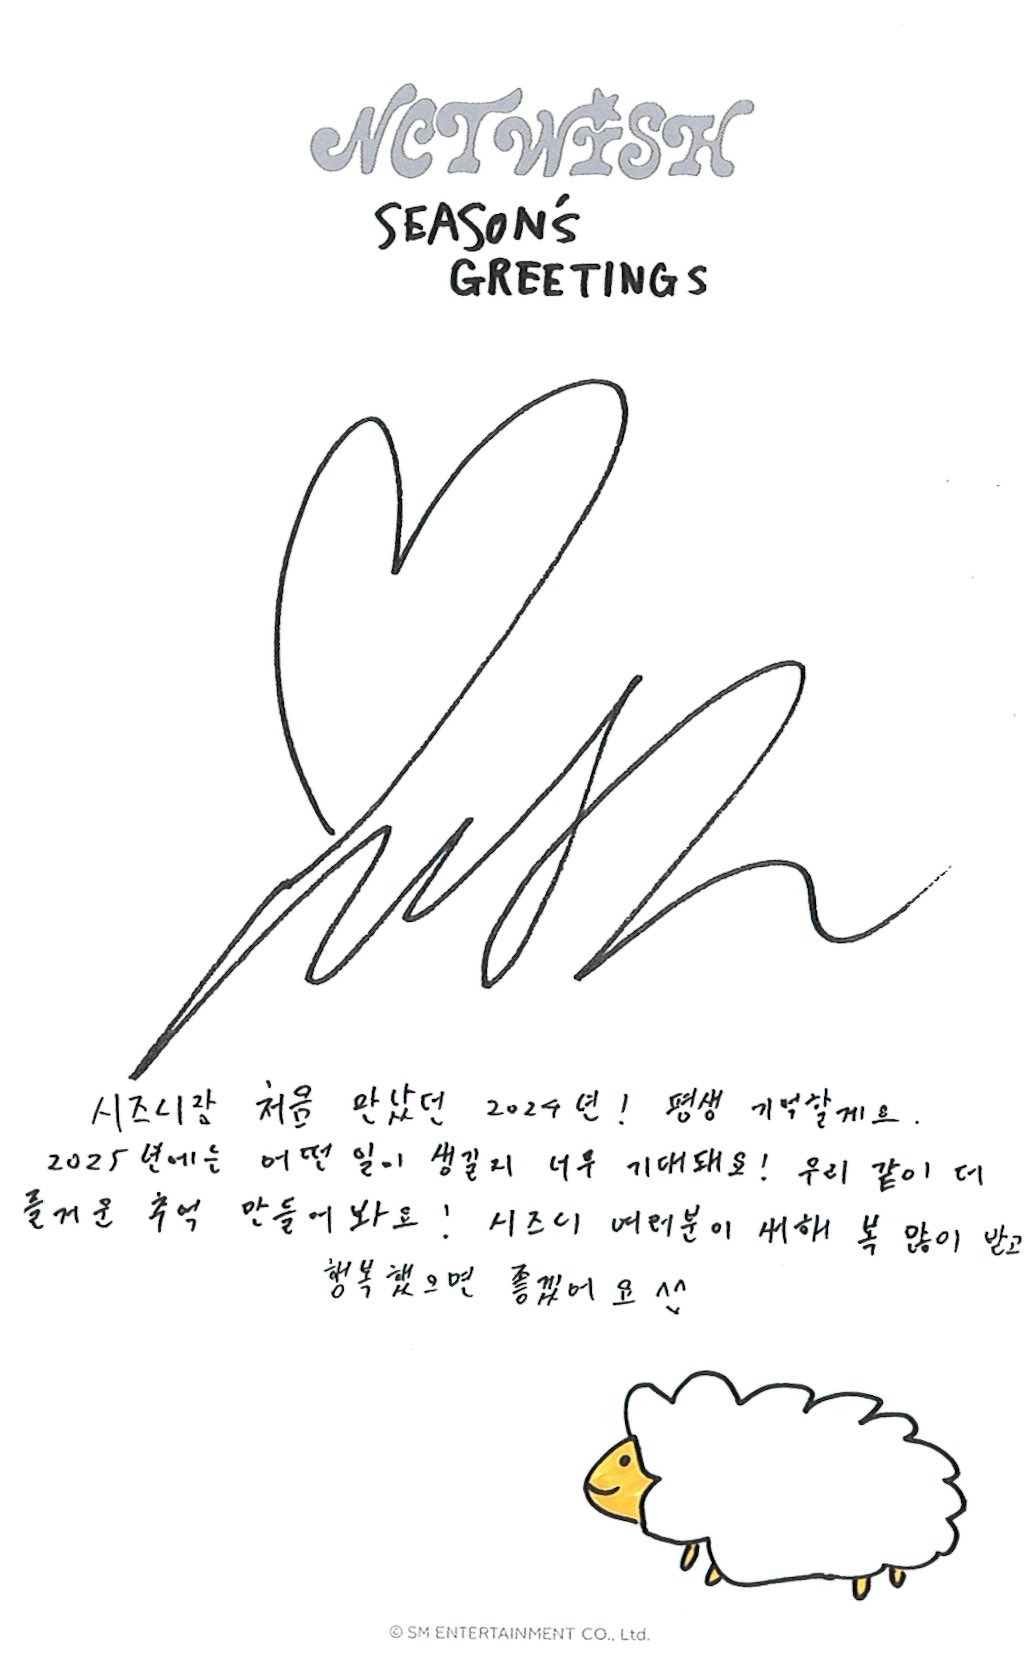 NCTWISH
SEASON'S
GREETINGS
시즈니랑 처음 만났던 2024년! 평생 기억할게요.
2025년에는 어떤 일이 생길지 너무 기대돼요! 우리 같이 더
즐거운 추억 만들어봐요! 시즈니 여러분이 새해 복 많이 받고
행복했으면 좋겠어요 ^^
© SM ENTERTAINMENT CO., Ltd.